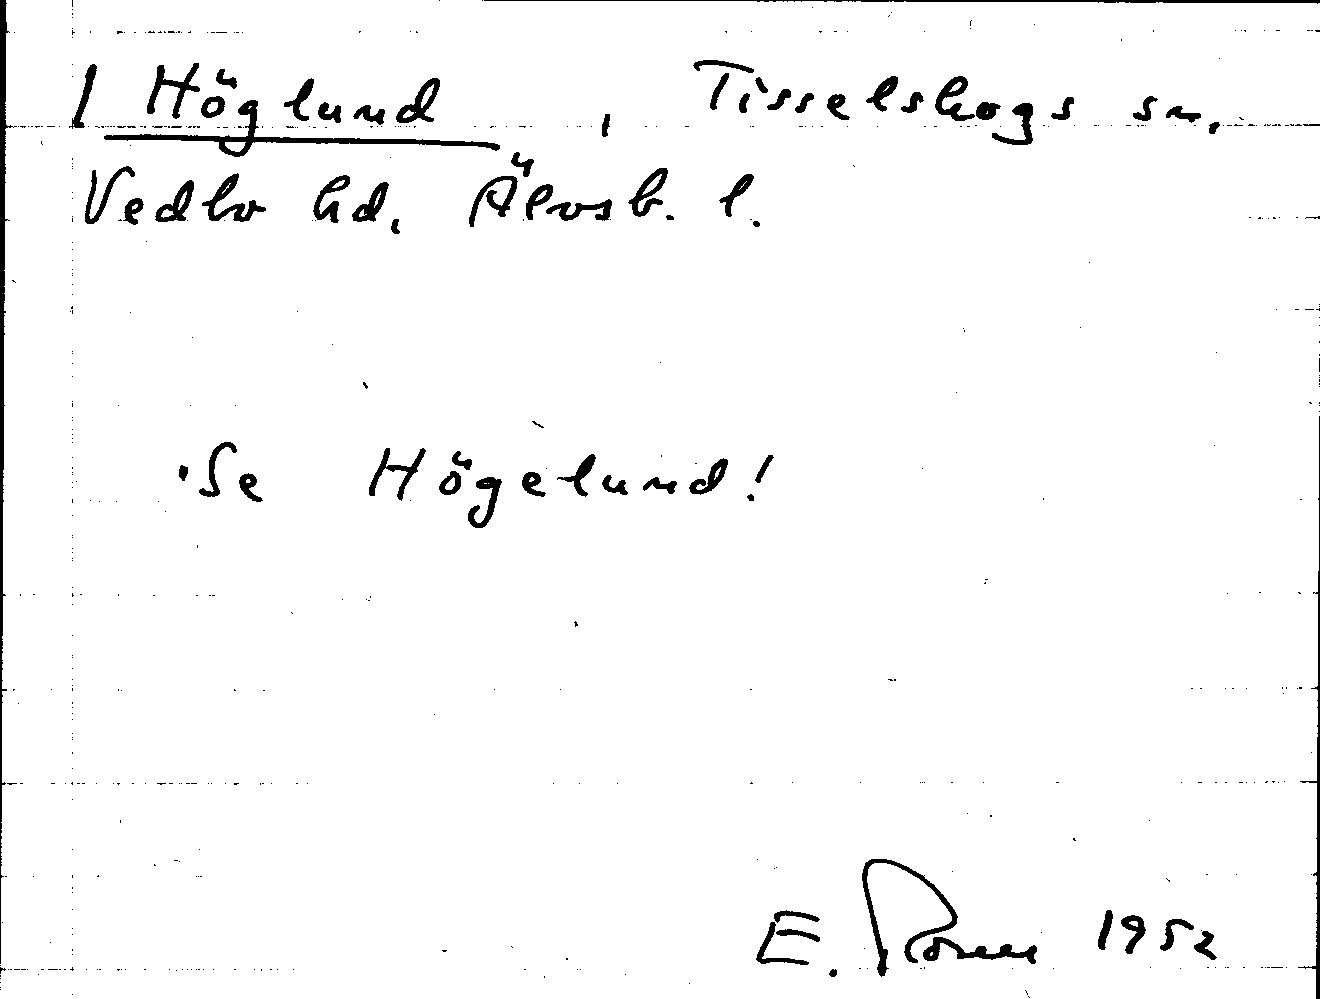 / Höglund, Tisselskogs sn,
Vedbo hd, Älvsb. l.
Se Högelund!
E. Rosell 1952